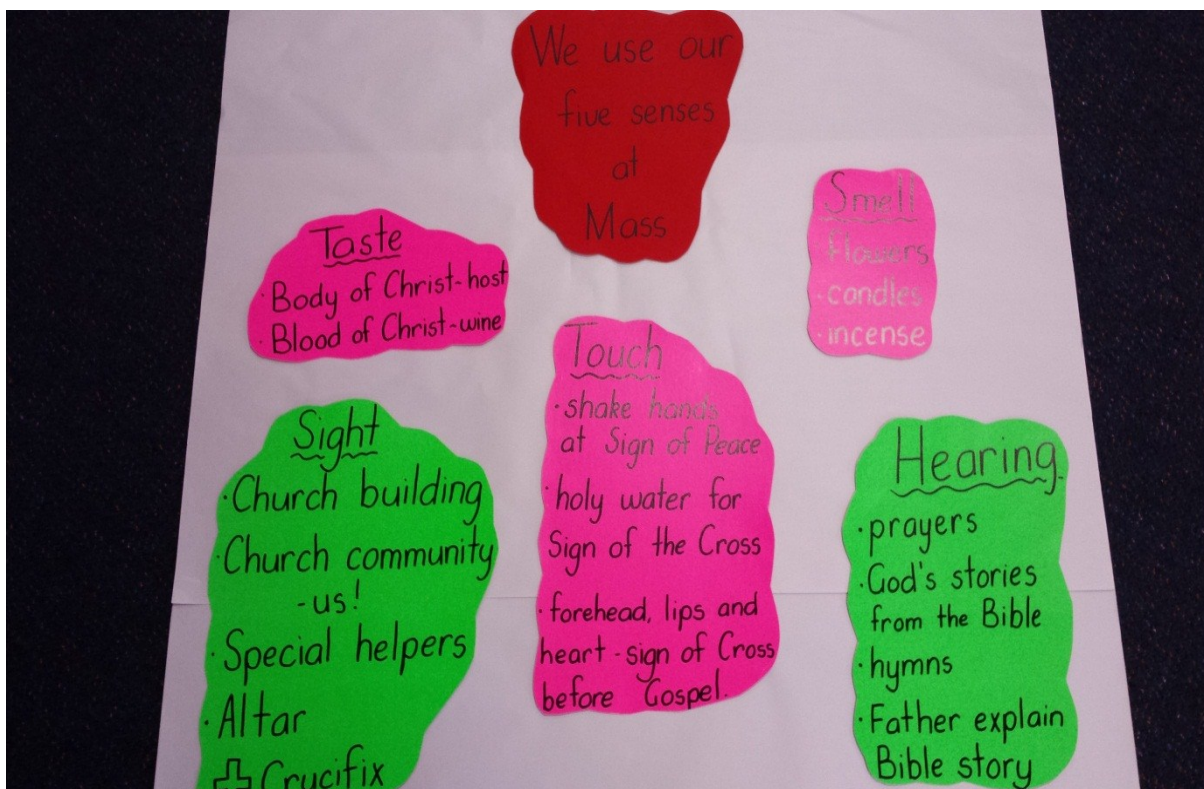 We use our
five senses
at
Mass
Taste
· Body of Christ-host
· Blood of Christ-wine
Smell
flowers
· candles
· incense
Touch
· shake hands
at Sign of Peace
· holy water for
Sign of the Cross
· forehead, lips and
heart - sign of Cross
before Gospel.
Sight
· Church building
· Church community
- us!
· Special helpers
· Altar
Crucifix
Hearing
· prayers
· God's stories
from the Bible
· hymns
· Father explain
Bible story